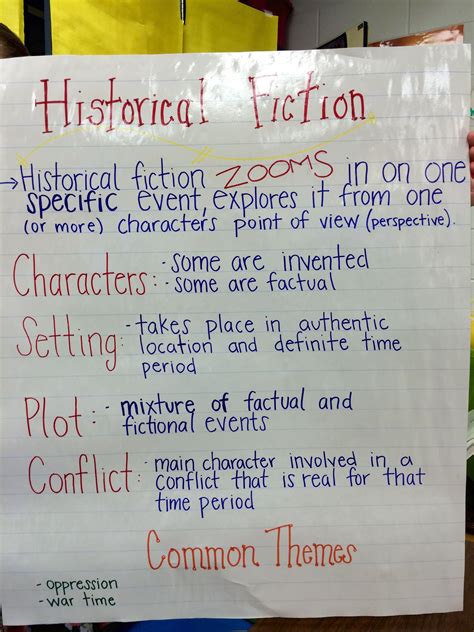 Historical Fiction
→Historical fiction ZOOMS in on one
specific event, explores it from one
(or more) characters point of view (perspective).
Characters: - some are invented
- some are factual
Setting: - takes place in authentic
location and definite time
period
Plot: - mixture of factual and
fictional events
Conflict: - main character involved in a
conflict that is real for that
time period
Common Themes
- oppression
- war time